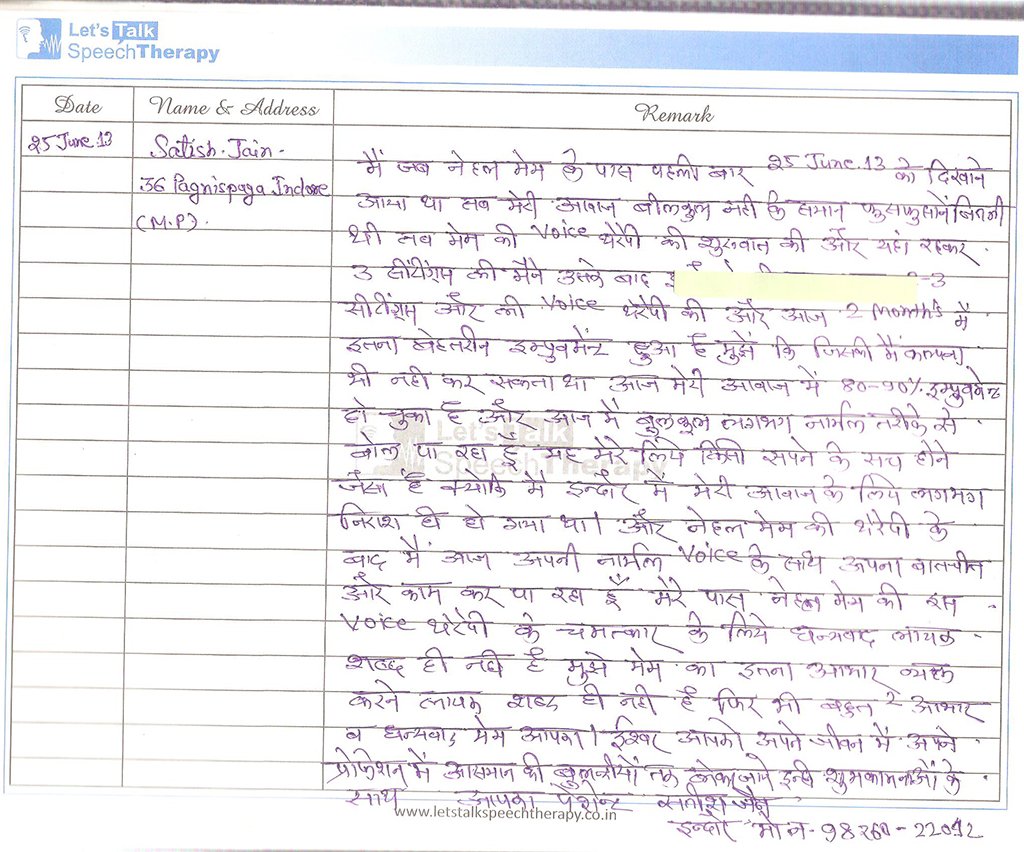 Let's Talk
SpeechTherapy
Date Name & Address Remark
25 June.13 Satish.Jain.
36 Pagnispaga Indore
(M.P).
मैं जब नेहल मेम के पास पहली बार 25 June.13 को दिखाने
आया था तब मेरी आवाज बीलकुल नही के समान फुसफुसाने जितनी
थी तब मेम की Voice थेरेपी की शुरुवात की और यहां रहकर.
3 सीटींग्स ली मैने उसके बाद 2-3
सीटींग्स और ली Voice थेरेपी की और आज 2 month's में
इतना बेहतरीन इम्प्रुवमेंन्ट हुआ है मुझे कि जिसकी मैं कल्पना
भी नही कर सकता था आज मेरी आवाज में 80-90% इम्प्रुवमेन्ट
हो चुका है और आज मैं बुलकूल लगभग नार्मल तरीके से
बोल पा रहा हूँ यह मेरे लिये किसी सपने के सच होने
जैसा है क्योकि मैं इन्दौर में मेरी आवाज के लिये लगभग
निराश ही हो गया था। और नेहल मेम की थेरेपी के
बाद मैं आज अपनी नार्मल Voice के साथ अपना बातचीत
और काम कर पा रहा हूँ मेरे पास नेहल मेम की इस.
Voice थेरेपी के चमत्कार के लिये धन्यवाद लायक.
शब्द ही नही है मुझे मेम का इतना आभार व्यक्त
करने लायक शब्द ही नही है फिर भी बहुत 2 आभार
व धन्यवाद मेम आपका। ईश्वर आपको अपने जीवन में अपने
प्रोफेशन में आसमान की बुलन्दीयों तक लेकर जाये इन्ही शुभकामनाओं के
साथ आपका पेशेन्ट सतीश जैन
इन्दौर मो न.-98260-22012
Let's Talk
SpeechTherapy
www.letstalkspeechtherapy.co.in